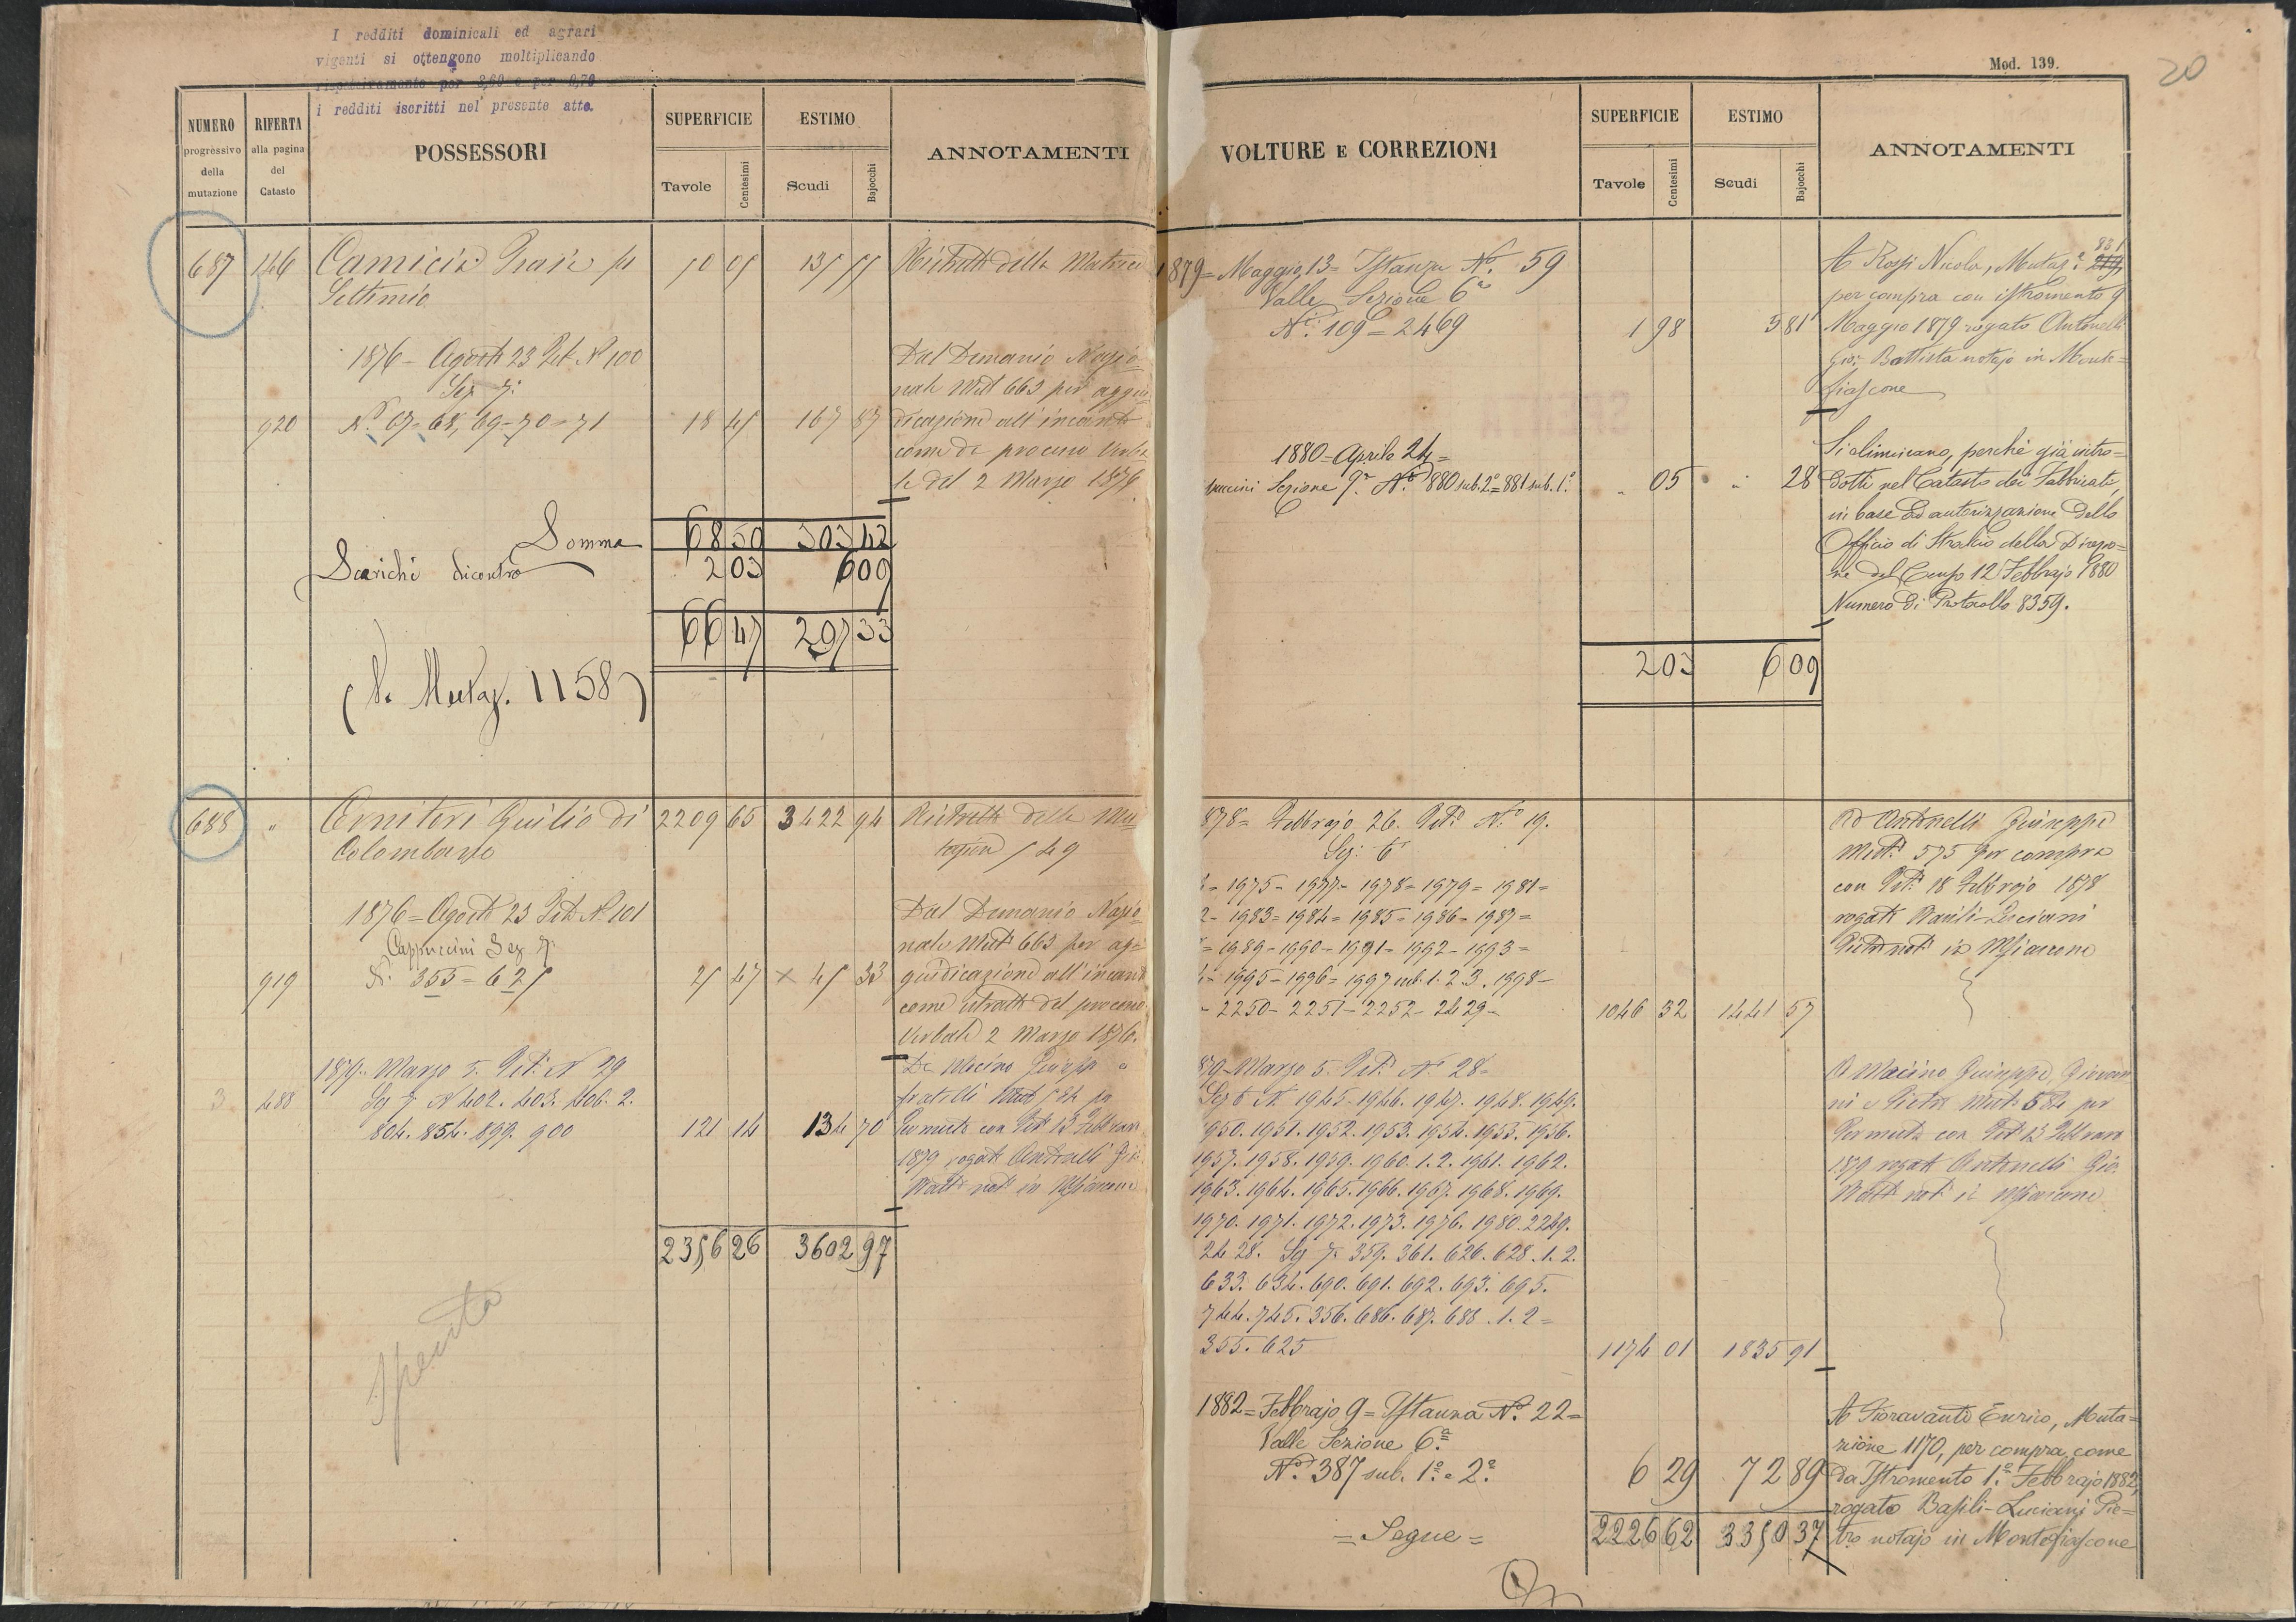 I redditi dominicali ed agrari
vigenti si ottengono moltiplicando
rispettivamente per 3,60 e per 0,70
i redditi iscritti nel presente atto.
NUMERO progressivo della mutazione
RIFERTA alla pagina del Catasto
POSSESSORI
SUPERFICIE
Tavole Centesimi
ESTIMO
Scudi Bajocchi
ANNOTAMENTI
687 146
Settimio
1876 - Agosto 23 Pet. N. 100
Sez. 7.
920 N. 67-68, 69-70-71 18 45 167 87
Dal Demanio Nazio
nale Mut 663 per aggiu
dicazione all'incanto
come da processo Verba
le del 2 Marzo 1876
Somma 68 50 303 42
Scarichi dicontro 2 03 6 09
66 47 297 33
(V. Mutaz. 1158)
688 " Giulio di 2209 65 3422 94
Colombano
1876 = Agosto 23 Pet. N. 101
Cappuccini Sez 7.
919 N. 355 = 625 25 47 × 45 33
Dal Demanio Nazio
nale Mut 663 per ag=
giudicazione all'incanto
come estratto del processo
Verbale 2 Marzo 1876.
1879. Marzo 5. Pet. N 29
3 488 Sez 7 N 402. 403. 406. 2.
804. 854. 899. 900 121 14 134 70
Da Macino Giuseppe e
fratelli Mut 584 per
Permuta con Ist 13 Febbraro
1879 rogato Antonelli Gio
Batta not in
2356 26 3602 97
Spenta
Mod. 139.
20
VOLTURE E CORREZIONI
SUPERFICIE
Tavole Centesimi
ESTIMO
Scudi Bajocchi
ANNOTAMENTI
1879 = Maggio 13 = Istanza N. 59
Valle Sezione 6a
N. 109 = 2469 1 98 5 81
A Rossi Nicola, Mutaz. 219 831
per compra con istromento 9
Maggio 1879 rogato Antonelli
Gio: Battista notajo in Monte=
fiascone
1880 = Aprile 24 =
Sezione 7a. N. 880 sub. 2. = 881 sub. 1. " 05 " 28
Si eliminano, perchè già intro=
dotti nel Catasto dei Fabbricati,
in base ad autorizzazione dello
Officio di Stralcio della Direzio=
ne del Censo 12 Febbrajo 1880
Numero di Protocollo 8359.
2 03 6 09
878 = Febbrajo 26. Pet. N. 19.
Sez: 6
- 1975 - 1977 - 1978 = 1979 = 1981 =
2 - 1983 = 1984 = 1985 = 1986 = 1987 =
= 1989 - 1990 - 1991 - 1992 - 1993 =
- 1995 - 1996 = 1997 sub. 1. 2. 3. 1998 -
- 2250 - 2251 - 2252 - 2429 - 1046 32 1441 57
Ad Antonelli Giuseppe
Mut. 575 per compra
con Ist. 18 Febbrajo 1878
rogato Basili-Luciani
879 - Marzo 5. Pet. N. 28 =
Sez 6 N. 1945 - 1946. 1947. 1948. 1949.
950. 1951. 1952. 1953. 1954. 1955. 1956.
1957. 1958. 1959. 1960. 1. 2. 1961. 1962.
1963. 1964. 1965. 1966. 1967. 1968. 1969.
1970. 1971. 1972. 1973. 1976. 1980. 2249.
2428. Sez 7. 359. 361. 626. 628. 1. 2.
633. 634. 690. 691. 692. 693. 695.
744. 745. 356. 686. 687. 688. 1. 2 =
355. 625 1174 01 1835 91
A Macino Giuseppe, Giovan
ni e Pietro Mut. 584 per
Permuta con Ist 13 Febbraro
1879 rogato Antonelli Gio.
Batt not in
1882 = Febbrajo 9 = Istanza N. 22 =
Valle Sezione 6a
N. 387 sub. 1. e 2. 6 29 72 89
A Fioravanti Enrico, Muta=
zione 1170, per compra come
da Istromento 1. Febbrajo 1882,
rogato Basili-Luciani Pie=
tro notajo in Montefiascone
= Segue = 2226 62 3350 37